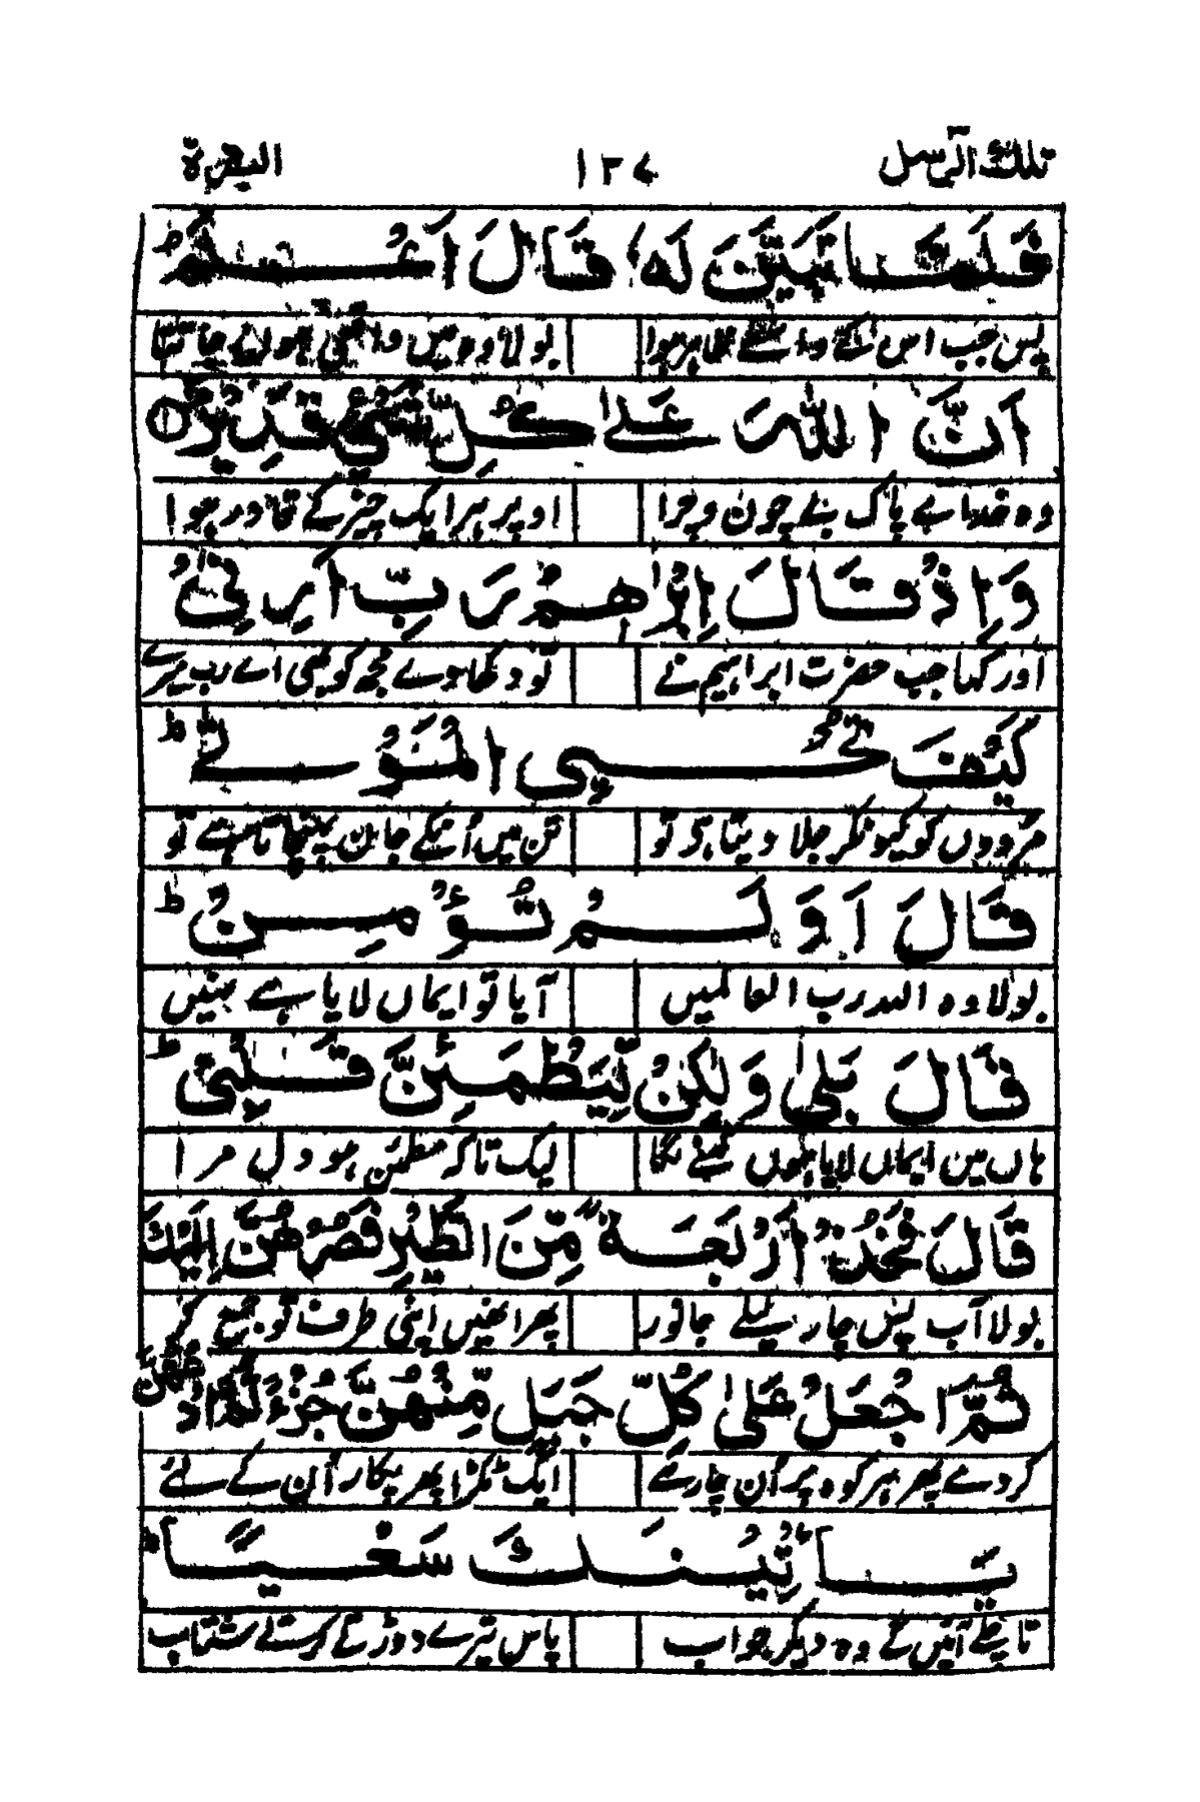 تلك الرسل ١٣٧ البقرة
فَلَمَّا تَبَيَّنَ لَهٗ قَالَ اَعْلَمُ ط
پس جب اس کے واسطے ظاہر ہوا بولا وہ میں واقعی ہوں جانتا
اَنَّ اللّٰهَ عَلٰى كُلِّ شَيْءٍ قَدِيْرٌ ○
وہ خدا ہے پاک بے چون و چرا اوپر ہر ایک چیز کے قادر ہوا
وَاِذْ قَالَ اِبْرٰهِمُ رَبِّ اَرِنِيْ
اور کہا جب حضرت ابراہیم نے تو دکھا دے مجھ کو بھی اے رب میرے
كَيْفَ تُحْيِي الْمَوْتٰى ط
مردوں کو کیونکر جلا دیتا ہی تو تن میں اُنکے جان پہنچاتا ہے تو
قَالَ اَوَلَمْ تُؤْمِنْ ط
بولا وہ اللہ رب العالمیں آیا تو ایماں لایا ہے نہیں
قَالَ بَلٰى وَلٰكِنْ لِّيَطْمَئِنَّ قَلْبِيْ ط
ہاں میں ایماں لایا ہوں کہنے لگا لیک تاکہ مطمئن ہو دل مرا
قَالَ فَخُذْ اَرْبَعَةً مِّنَ الطَّيْرِ فَصُرْهُنَّ اِلَيْكَ
بولا آپ پس چار لیلے جانور پھر انھیں اپنی طرف تو جمع کر
ثُمَّ اجْعَلْ عَلٰى كُلِّ جَبَلٍ مِّنْهُنَّ جُزْءًا ثُمَّ ادْعُهُنَّ
کردے پھر ہر کوہ پر اُن چار کے ایک ٹکڑا پھر پکار اُن کے لئے
يَاْتِيْنَكَ سَعْيًا ط
تا آئیں گے وہ دیکر جواب پاس تیرے دوڑتے کرتے شتاب